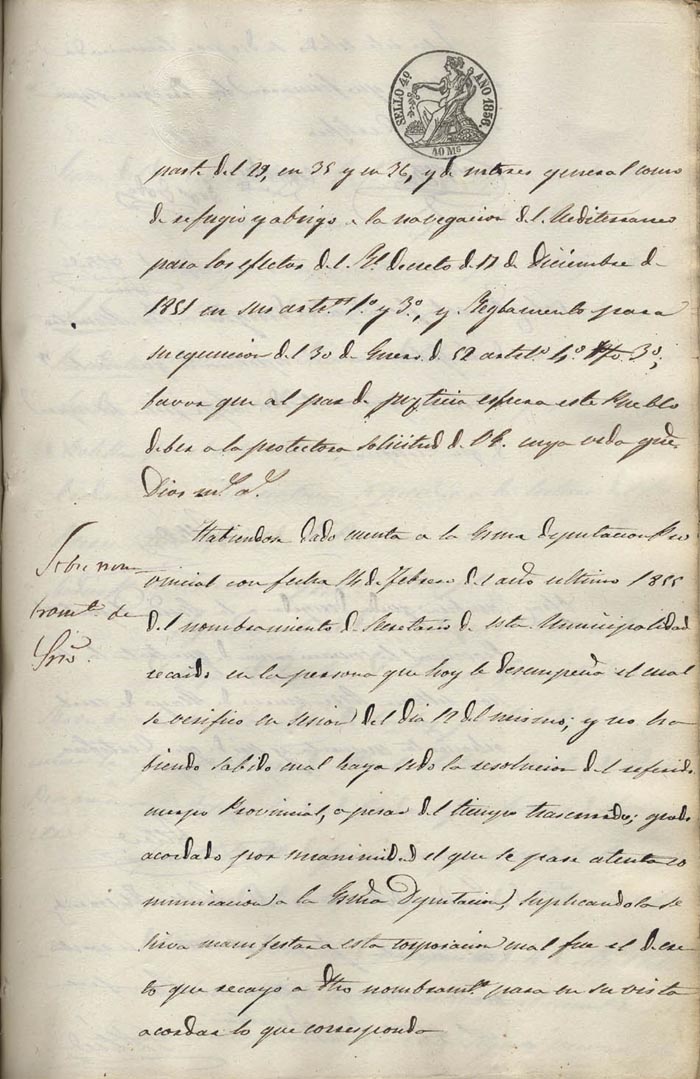 SELLO 4º AÑO 1856.
40 Ms
parte del 29, en 35 y en 36, y de interes general como
de refugio y abrigo a la navegacion del Mediterraneo
para los efectos del Rl decreto de 17 de Diciembre de
1851 en sus artos 1º y 3º, y Reglamento para
su egecucion del 30 de Enero de 52 artlo 3º;
favor que al par de justicia espera este Pueblo
deber a la protectora solicitud de V.E. cuya vida gude
Dios ms as.
Sobre nom-
bramto de
Srio.
Habiendose dado cuenta a la Exma Diputacion Pro
vincial con fecha 14 de Febrero del año ultimo 1855
del nombramiento de Secretario de esta Municipalidad
recaido en la persona que hoy lo desempeña el cual
se verifico en sesion del dia 12 del mismo; y no ha
biendo sabido cual haya sido la resolucion del referido
cuerpo Provincial, a pesar del tiempo trascurrido; quedo
acordado por unanimidad el que se pase atenta co
municacion a la Exma Diputacion, suplicandola se
sirva manifestar a esta corporacion cual fue el decre
to que recayo a dho nombramto para en su vista
acordar lo que corresponda